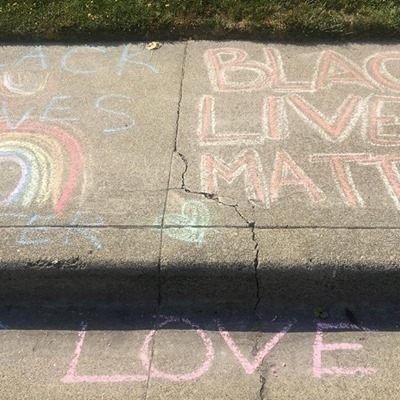 LACK
IVES
TER
BLAC
LIVE
MATT
LOVE